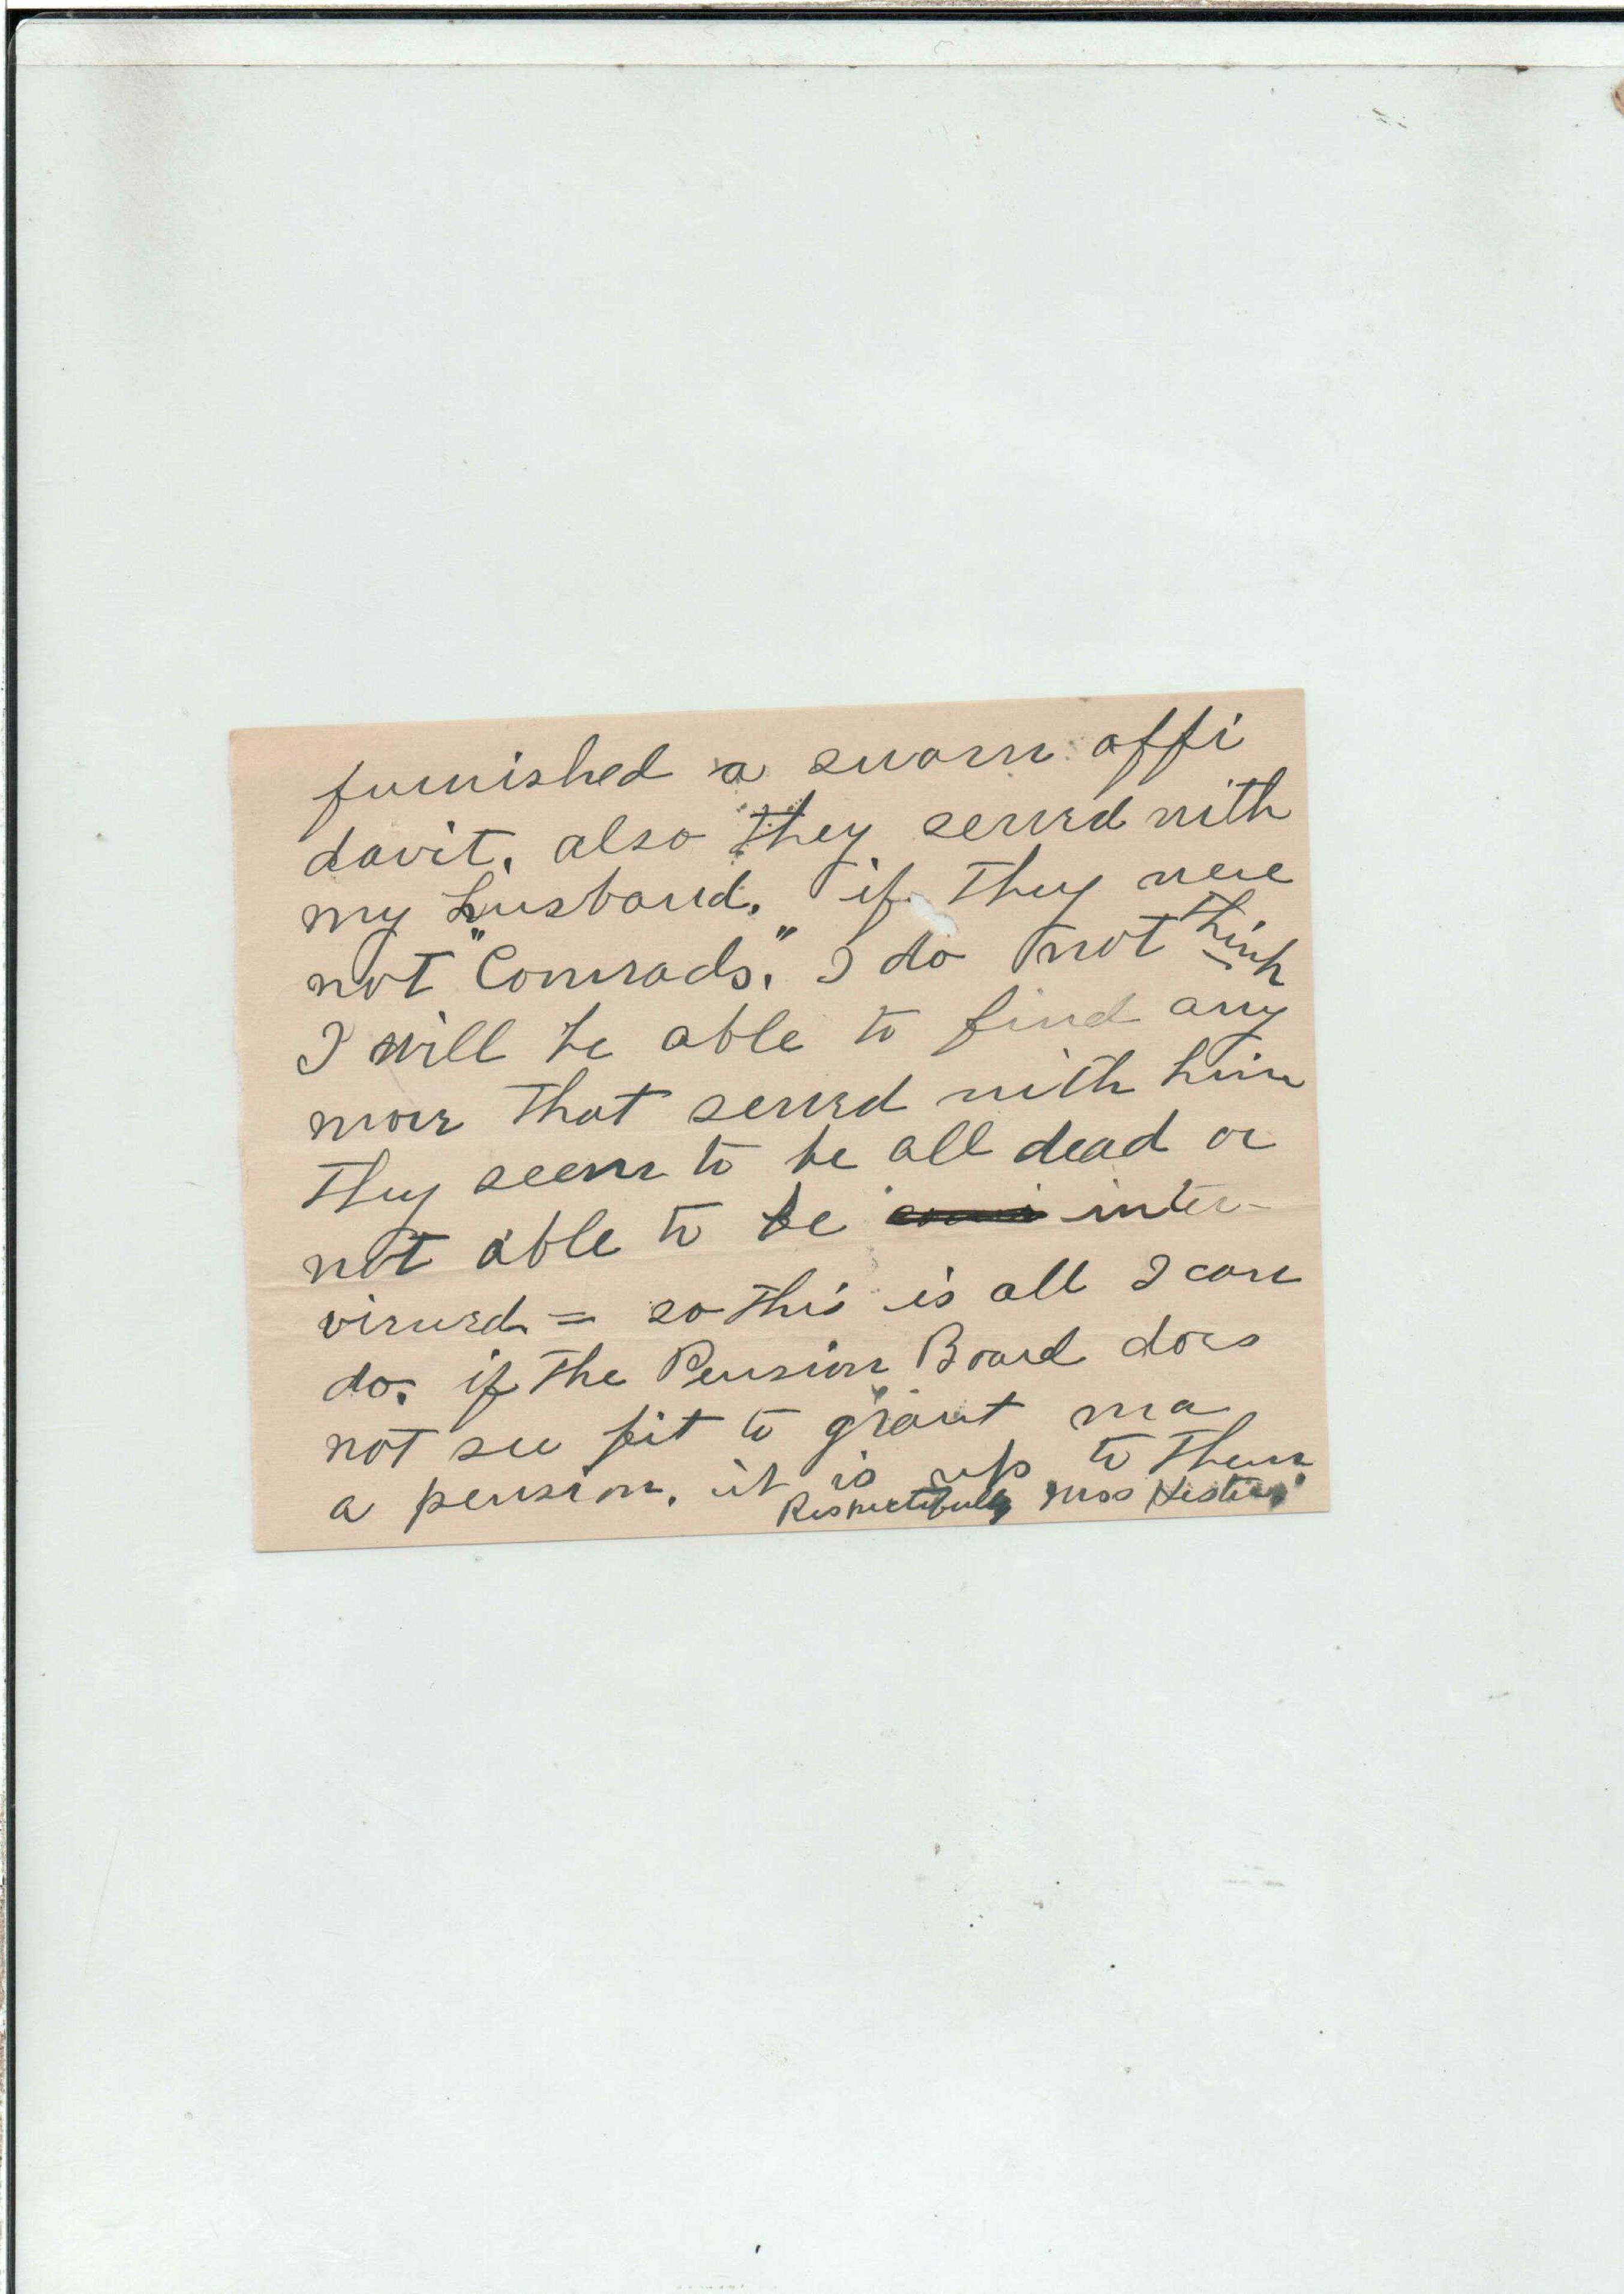 furnished a sworn affi
davit. also they served with
my husband. if they were
not "Comrads." I do not think
I will be able to find any
more that served with him
they seem to be all dead or
not able to be inter-
viewed = so this is all I can
do. if the Pension Board does
not see fit to grant me
a pension. it is up to them
Respectfully Mrs